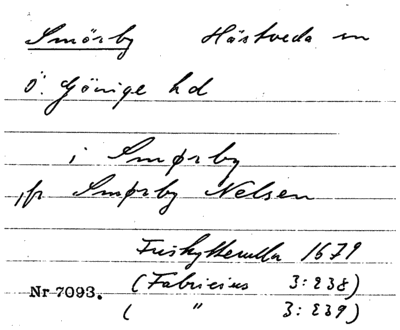 Smörby Hästveda sn
Ö. Göinge hd
i Smørby
fr Smørby Nelsen
Friskytterulla 1679
(Fabricius 3:238)
Nr 7093.
( " 3:239)